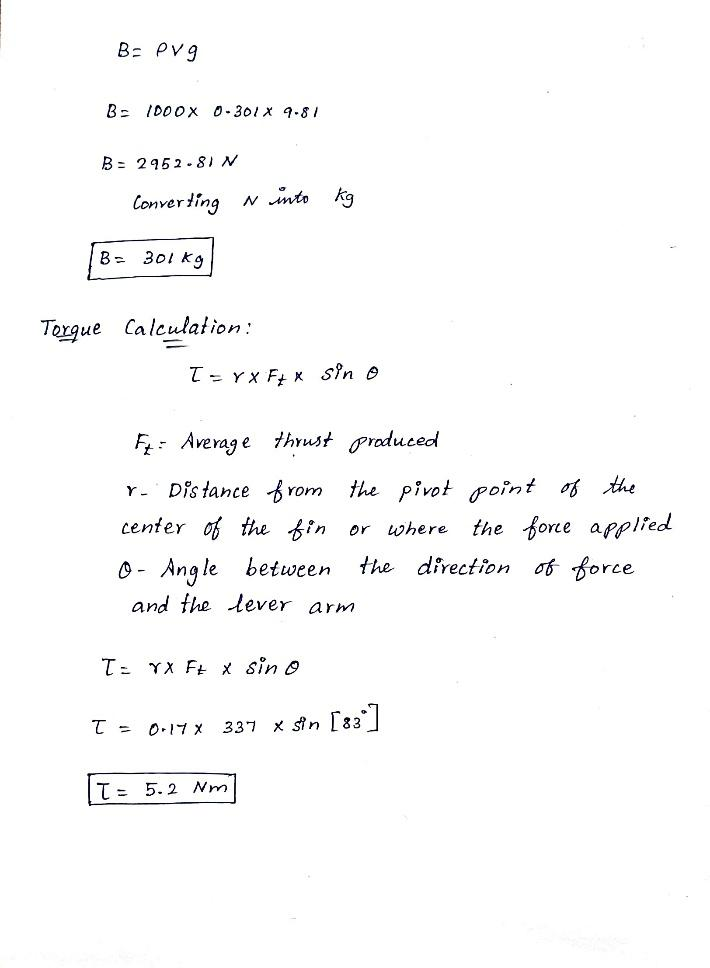 B = ρVg
B = 1000 × 0.301 × 9.81
B = 2952.81 N
Converting N into kg
B = 301 kg
Torque Calculation:
τ = r × Ft × sin θ
Ft = Average thrust produced
r - Distance from the pivot point of the
center of the fin or where the force applied
θ - Angle between the direction of force
and the lever arm
τ = r × Ft × sin θ
τ = 0.17 × 337 × sin [83°]
τ = 5.2 Nm